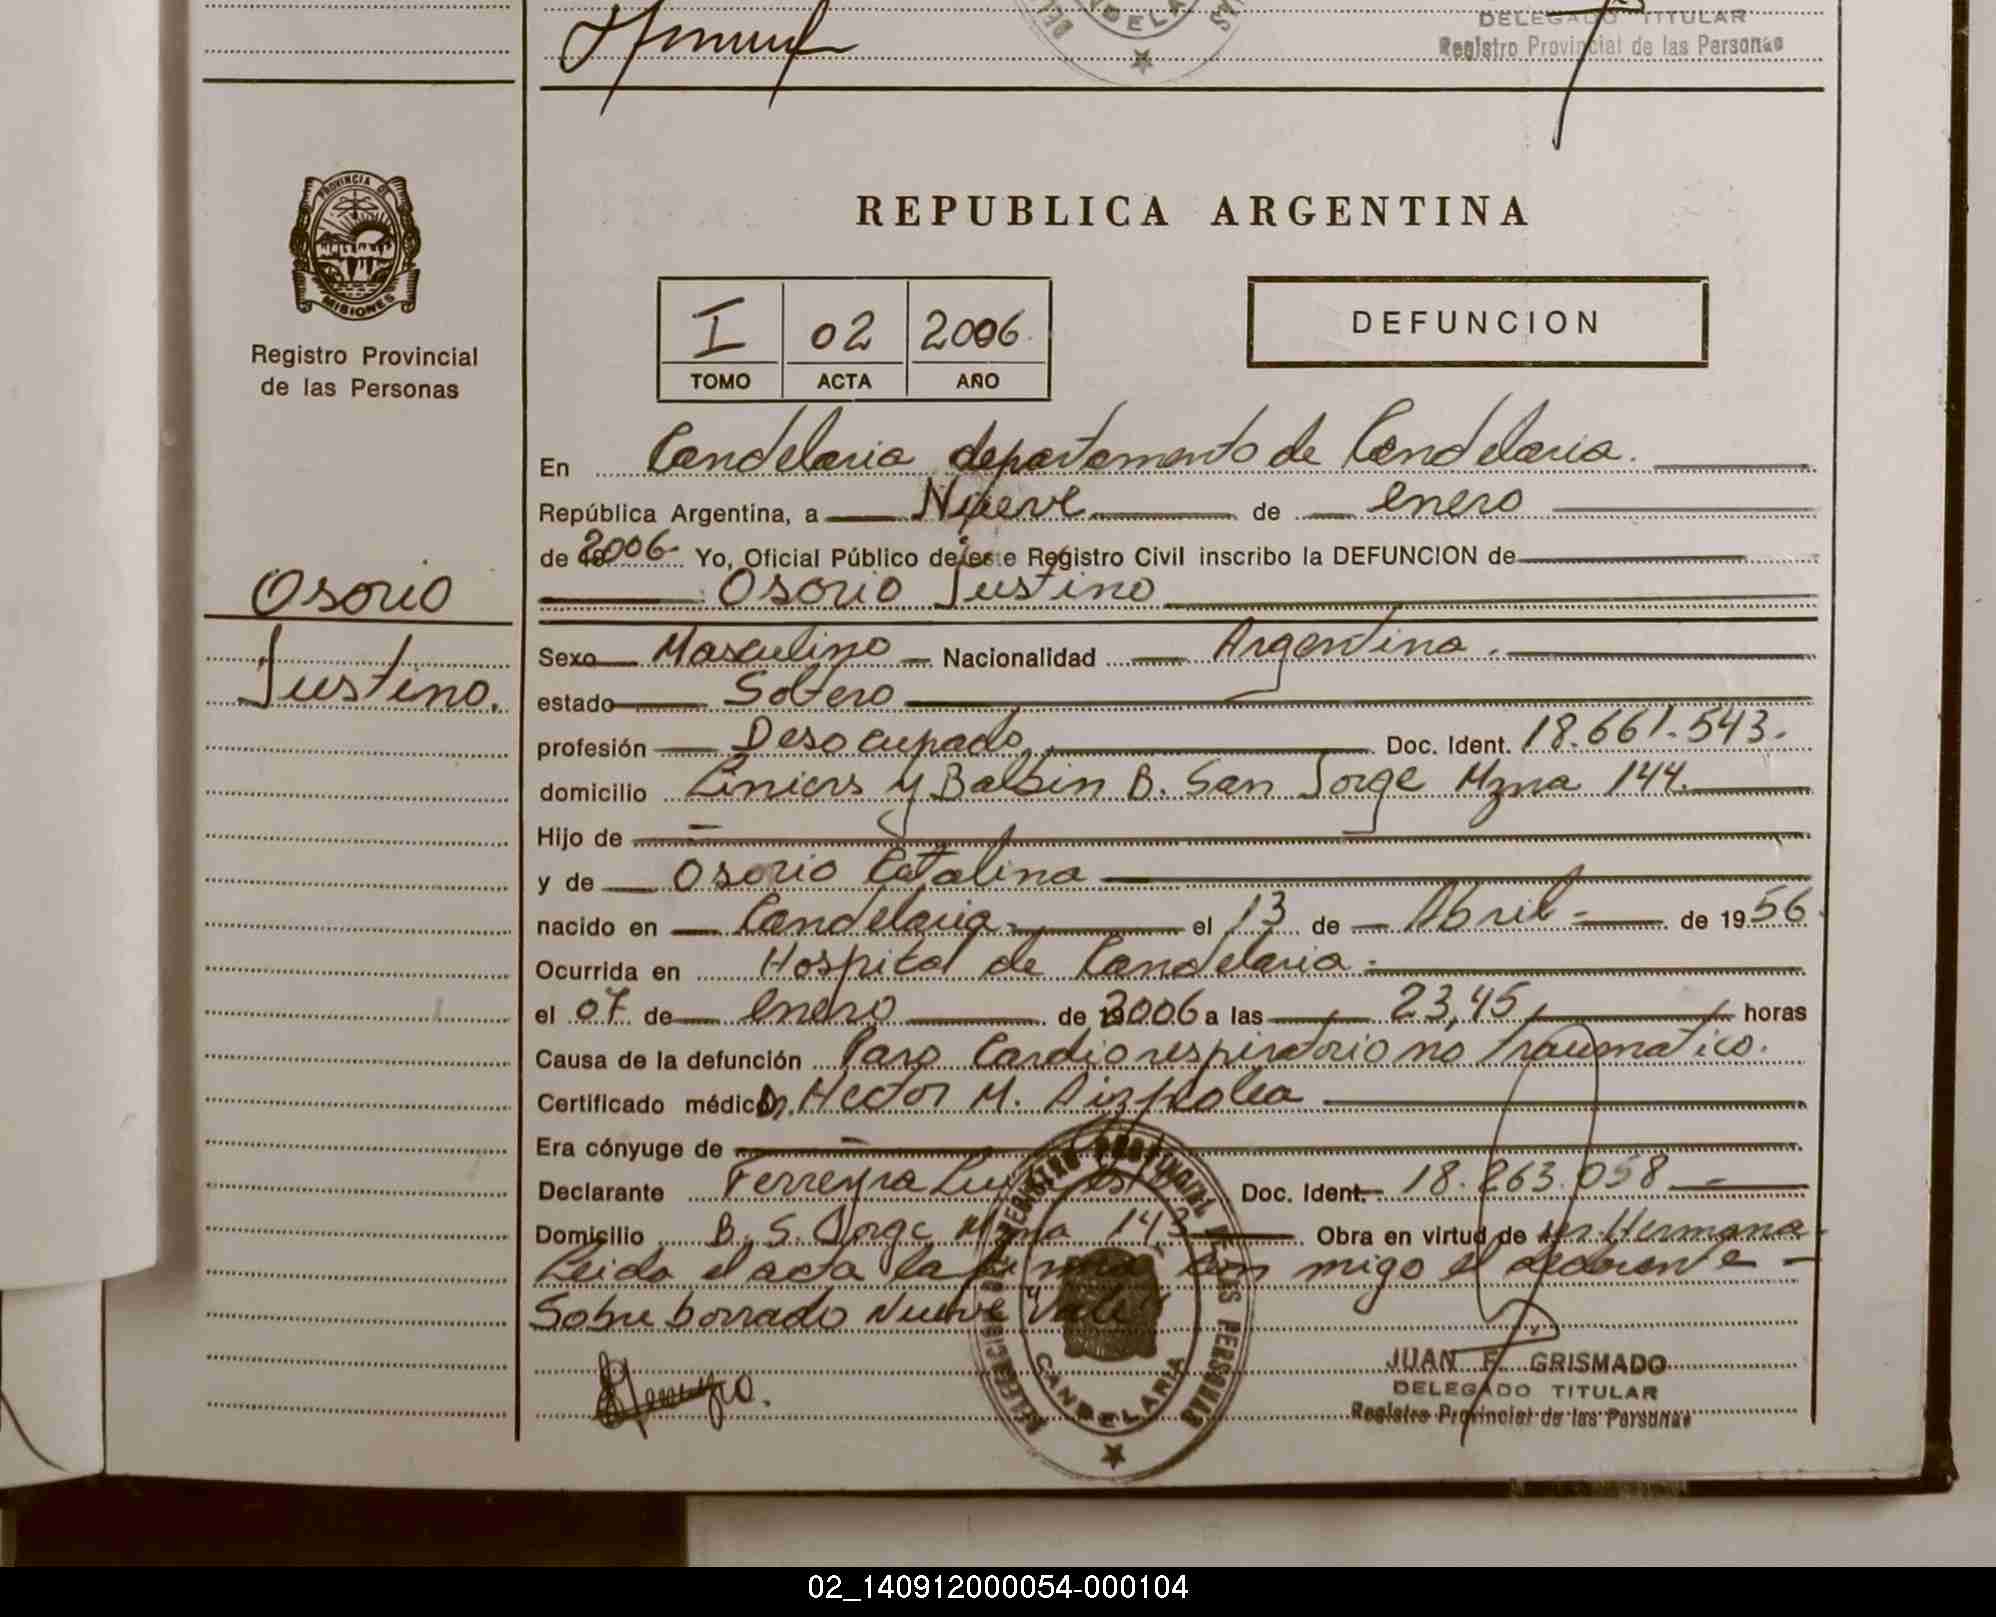 DELEGADO TITULAR
Registro Provincial de las Personas
CANDELARIA
PROVINCIA DE
MISIONES
Registro Provincial
de las Personas
Osorio
Justino.
REPUBLICA ARGENTINA
I 02 2006
TOMO ACTA AÑO
DEFUNCION
En Candelaria departamento de Candelaria.
República Argentina, a Nueve de enero
de 2006 Yo, Oficial Público de este Registro Civil inscribo la DEFUNCION de
Osorio Justino
Sexo Masculino Nacionalidad Argentina.
estado Soltero
profesión Desocupado, Doc. Ident. 18.661.543.
domicilio Liniers y Balbin B. San Jorge Mzna 144.
Hijo de
y de Osorio Catalina
nacido en Candelaria el 13 de Abril de 1956
Ocurrida en Hospital de Candelaria
el 07 de enero de 2006 a las 23,45 horas
Causa de la defunción Paro Cardiorespiratorio no traumatico.
Certificado médico Dr. Hector M.
Era cónyuge de
Declarante Ferreyra Doc. Ident. 18.263.058
Domicilio B. S. Jorge Mzna 143 Obra en virtud de ser Hermana
Leida el acta la firma con migo el declarante
Sobre borrado Nueve "Vale"
REGISTRO PROVINCIAL DE LAS PERSONAS
CANDELARIA
JUAN F. GRISMADO
DELEGADO TITULAR
Registro Provincial de las Personas
02_140912000054-000104